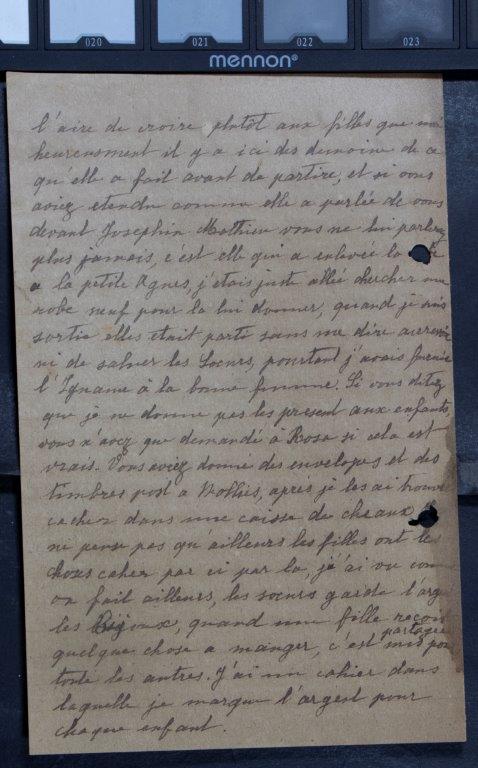 020 021 022 023
mennon®
l'aire de croire plutôt aux filles que moi
heureusment il y a ici des temoins de ce
qu'elle a fait avant de partire, et si vous
aviez etendu comme elle a parlée de vous
devant Josephin Mathieu vous ne lui parlerez
plus jamais, c'est elle qui a enlevée la
a la petite Agnes, j'etais juste allée chercher une
robe neuf pour la lui donner, quand je suis
sortie elles etait parti sans me dire aurevoir
ni de saluer les Soeurs, pourtant j'avais
l'Igname à la bonne femme. Si vous ditez
que je ne donne pas les present aux enfants,
vous n'avez que demandé à Rosa si cela est
vrais. Vous aviez donné des envelopes et des
timbres post a, apres je les ai trouvé
cacher dans une caisse de
ne pense pas qu'ailleurs les filles ont les
chous caher par ci par la, j'ai vu comme
on fait ailleurs, les soeurs garde l'argent
les Bijoux, quand une fille reçoit
quelque chose a manger, c'est mis partagé pour
toute les autres. J'ai un cahier dans
laquelle je marque l'argent pour
chaque enfant.